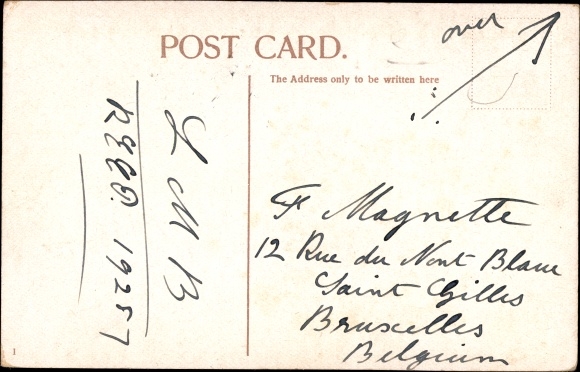 over
POST CARD.
The Address only to be written here
L M B
19257
F Magnette
12 Rue du Mont Blanc
Saint Gilles
Bruxelles
Belgium
1